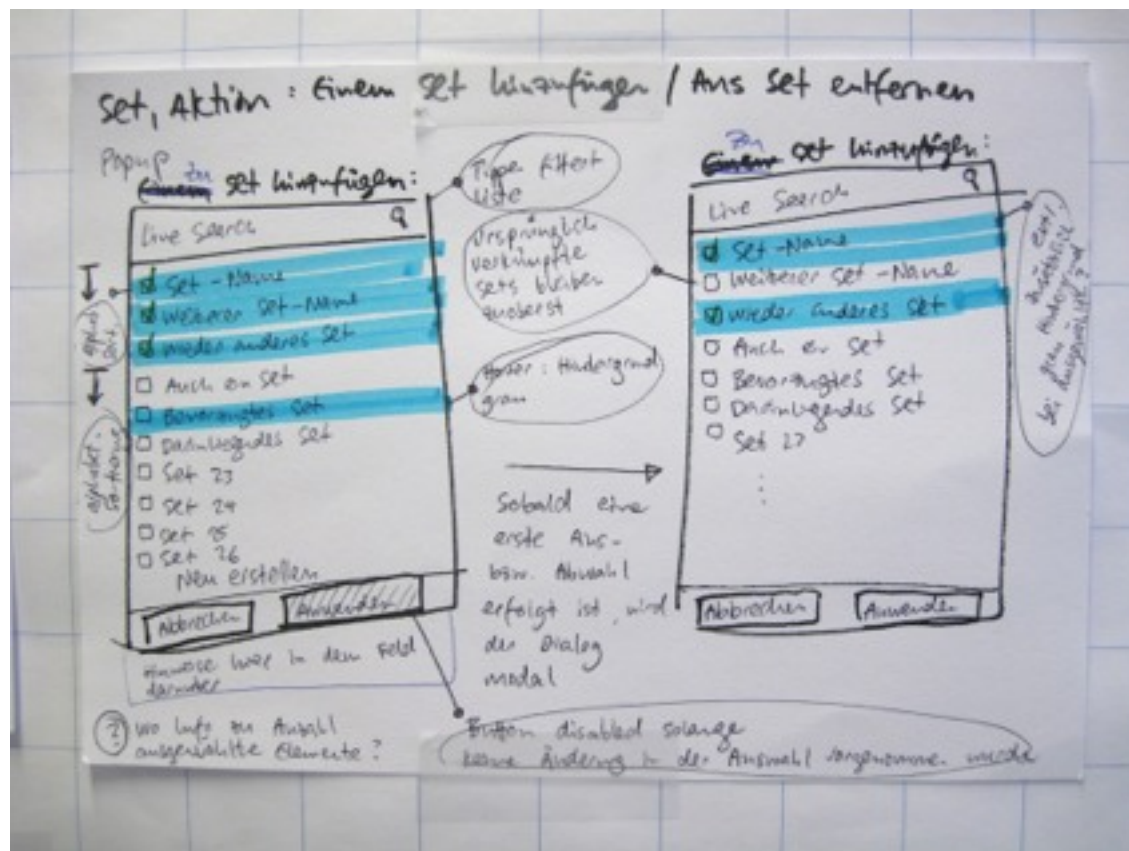 Set, Aktion : Einem Set hinzufügen / Aus Set entfernen
Popup
Zu
Einem Set hinzufügen:
Live Search
Set-Name
Weiterer Set-Name
wieder anderes Set
Auch ein Set
Bevorzugtes Set
Set 23
Set 24
Set 25
Set 26
Neu erstellen
Abbrechen
Anwenden
Hinweise hier in dem Feld
darunter
alphabet.
sortierung
? wo Info zu Anzahl
ausgewählte Elemente?
filtert
Liste
Ursprünglich
verknüpfte
Sets bleiben
zuoberst
Hover: Hintergrund
grau
Sobald eine
erste Aus-
bzw. Abwahl
erfolgt ist, wird
der Dialog
modal
Button disabled solange
keine Änderung in der Auswahl vorgenommen wurde
Zu
Einem Set hinzufügen:
Live Search
Set-Name
Weiterer Set-Name
wieder anderes Set
Auch ein Set
Bevorzugtes Set
Set 27
Abbrechen
Anwenden
evtl.
zusätzlich
grau Hintergrund
bei Ausgewählte?